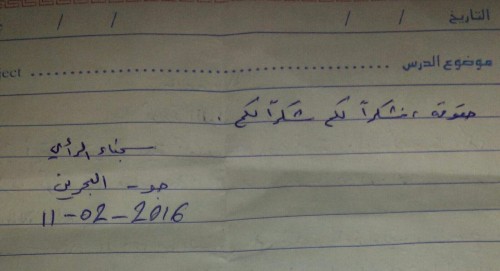 التاريخ / / / /
موضوع الدرس ........................ ject
حقوقه ، فشكراً لكم شكراً لكم .
سجناء الرأي
جو - البحرين
11-02-2016